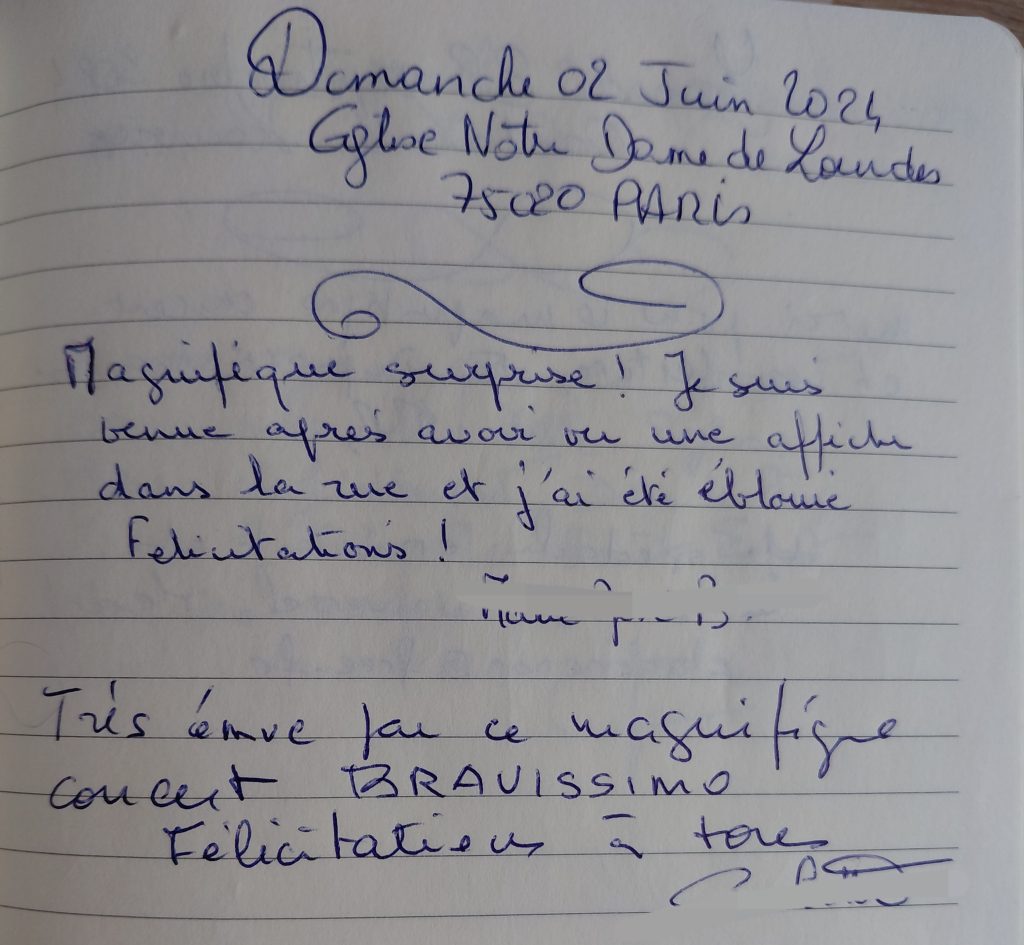 Dimanche 02 Juin 2024
Eglise Notre Dame de Lourdes
75020 PARIS
Magnifique surprise ! Je suis
venue après avoir vu une affiche
dans la rue et j'ai été éblouie
Felicitations !
Très émue par ce magnifique
concert BRAVISSIMO
Félicitations à tous